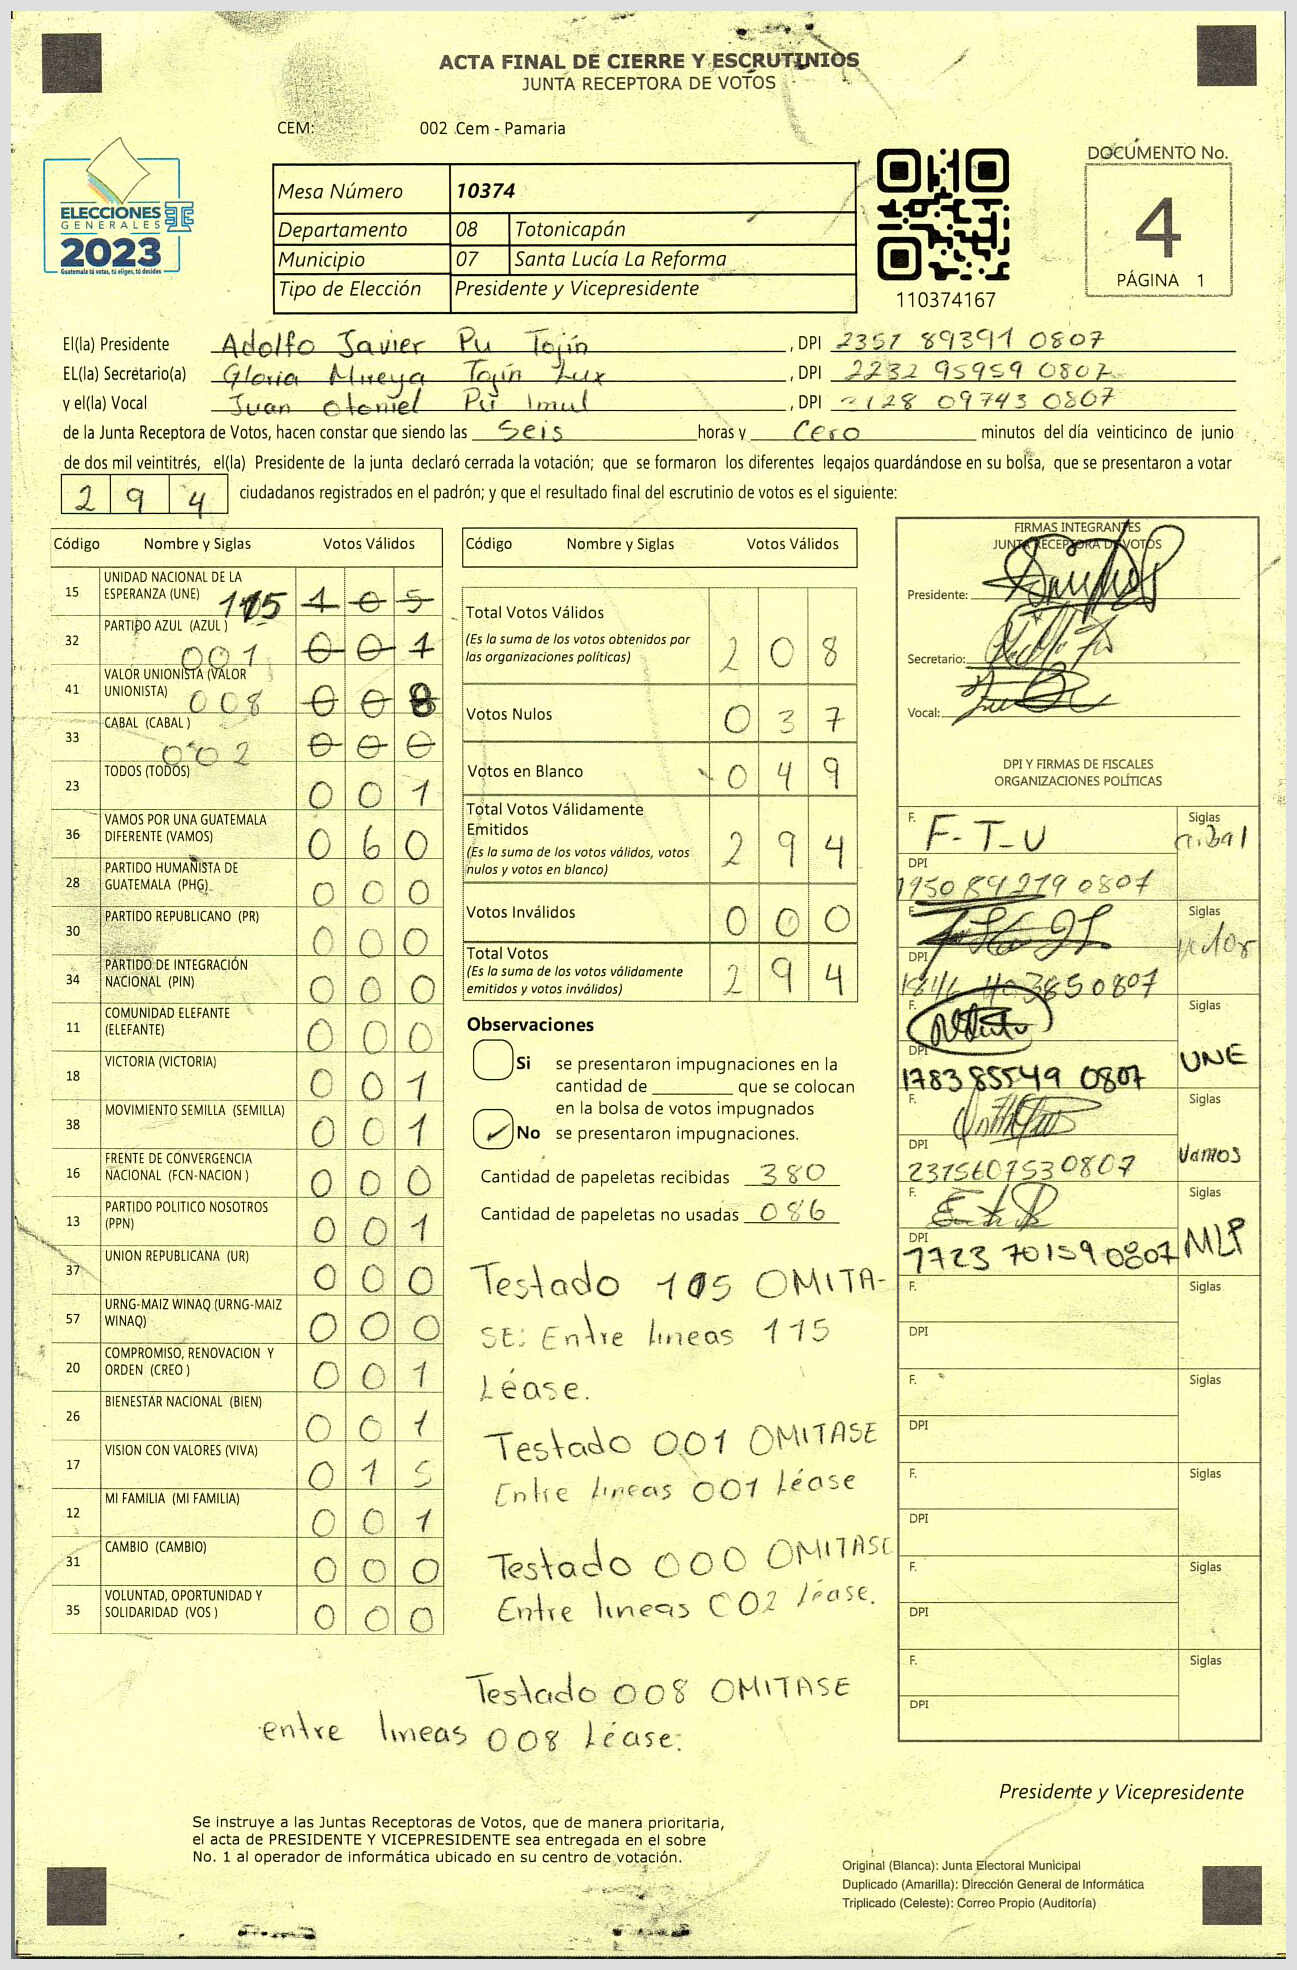 ACTA FINAL DE CIERRE Y ESCRUTINIOS
JUNTA RECEPTORA DE VOTOS
CEM: 002 Cem - Pamaria
DOCUMENTO No.
4
PÁGINA 1
ELECCIONES
GENERALES
2023
Guatemala tú votas, tú eliges, tú decides
Mesa Número 10374
Departamento 08 Totonicapán
Municipio 07 Santa Lucía La Reforma
Tipo de Elección Presidente y Vicepresidente
110374167
El(la) Presidente Adolfo Javier Pu Tojín , DPI 2357 89391 0807
EL(la) Secretario(a) Gloria Mireya Tojín Lux , DPI 2232 95959 0807
y el(la) Vocal Juan Otoniel Pú Imul , DPI 3128 09743 0807
de la Junta Receptora de Votos, hacen constar que siendo las Seis horas y Cero minutos del día veinticinco de junio
de dos mil veintitrés, el(la) Presidente de la junta declaró cerrada la votación; que se formaron los diferentes legajos guardándose en su bolsa, que se presentaron a votar
294 ciudadanos registrados en el padrón; y que el resultado final del escrutinio de votos es el siguiente:
Código Nombre y Siglas Votos Válidos
15 UNIDAD NACIONAL DE LA
ESPERANZA (UNE) 115 105
32 PARTIDO AZUL (AZUL ) 001 001
41 VALOR UNIONISTA (VALOR
UNIONISTA) 008 008
33 CABAL (CABAL ) 002 000
23 TODOS (TODOS) 001
36 VAMOS POR UNA GUATEMALA
DIFERENTE (VAMOS) 060
28 PARTIDO HUMANISTA DE
GUATEMALA (PHG) 000
30 PARTIDO REPUBLICANO (PR) 000
34 PARTIDO DE INTEGRACIÓN
NACIONAL (PIN) 000
11 COMUNIDAD ELEFANTE
(ELEFANTE) 000
18 VICTORIA (VICTORIA) 001
38 MOVIMIENTO SEMILLA (SEMILLA) 001
16 FRENTE DE CONVERGENCIA
NACIONAL (FCN-NACION ) 000
13 PARTIDO POLITICO NOSOTROS
(PPN) 001
37 UNION REPUBLICANA (UR) 000
57 URNG-MAIZ WINAQ (URNG-MAIZ
WINAQ) 000
20 COMPROMISO, RENOVACION Y
ORDEN (CREO ) 001
26 BIENESTAR NACIONAL (BIEN) 001
17 VISION CON VALORES (VIVA) 015
12 MI FAMILIA (MI FAMILIA) 001
31 CAMBIO (CAMBIO) 000
35 VOLUNTAD, OPORTUNIDAD Y
SOLIDARIDAD (VOS ) 000
Código Nombre y Siglas Votos Válidos
Total Votos Válidos 208
(Es la suma de los votos obtenidos por
las organizaciones políticas)
Votos Nulos 037
Votos en Blanco 049
Total Votos Válidamente
Emitidos 294
(Es la suma de los votos válidos, votos
nulos y votos en blanco)
Votos Inválidos 000
Total Votos 294
(Es la suma de los votos válidamente
emitidos y votos inválidos)
Observaciones
Si se presentaron impugnaciones en la
cantidad de ________ que se colocan
en la bolsa de votos impugnados
No se presentaron impugnaciones.
Cantidad de papeletas recibidas 380
Cantidad de papeletas no usadas 086
Testado 105 OMITA-
SE: Entre lineas 115
Léase.
Testado 001 OMITASE
Entre lineas 001 Léase
Testado 000 OMITASE
Entre lineas 002 léase.
Testado 008 OMITASE
entre lineas 008 Léase.
FIRMAS INTEGRANTES
JUNTA RECEPTORA DE VOTOS
Presidente:
Secretario:
Vocal:
DPI Y FIRMAS DE FISCALES
ORGANIZACIONES POLÍTICAS
F. F-T-U Siglas
DPI
1950 89279 0807
F. Siglas
DPI
F. Siglas
DPI UNE
1783 85549 0807
F. Siglas
DPI Vamos
2375607530807
F. Siglas
DPI MLP
1723 70159 0807
F. Siglas
DPI
F. Siglas
DPI
F. Siglas
DPI
F. Siglas
DPI
F. Siglas
DPI
Presidente y Vicepresidente
Se instruye a las Juntas Receptoras de Votos, que de manera prioritaria,
el acta de PRESIDENTE Y VICEPRESIDENTE sea entregada en el sobre
No. 1 al operador de informática ubicado en su centro de votación.
Original (Blanca): Junta Electoral Municipal
Duplicado (Amarilla): Dirección General de Informática
Triplicado (Celeste): Correo Propio (Auditoría)